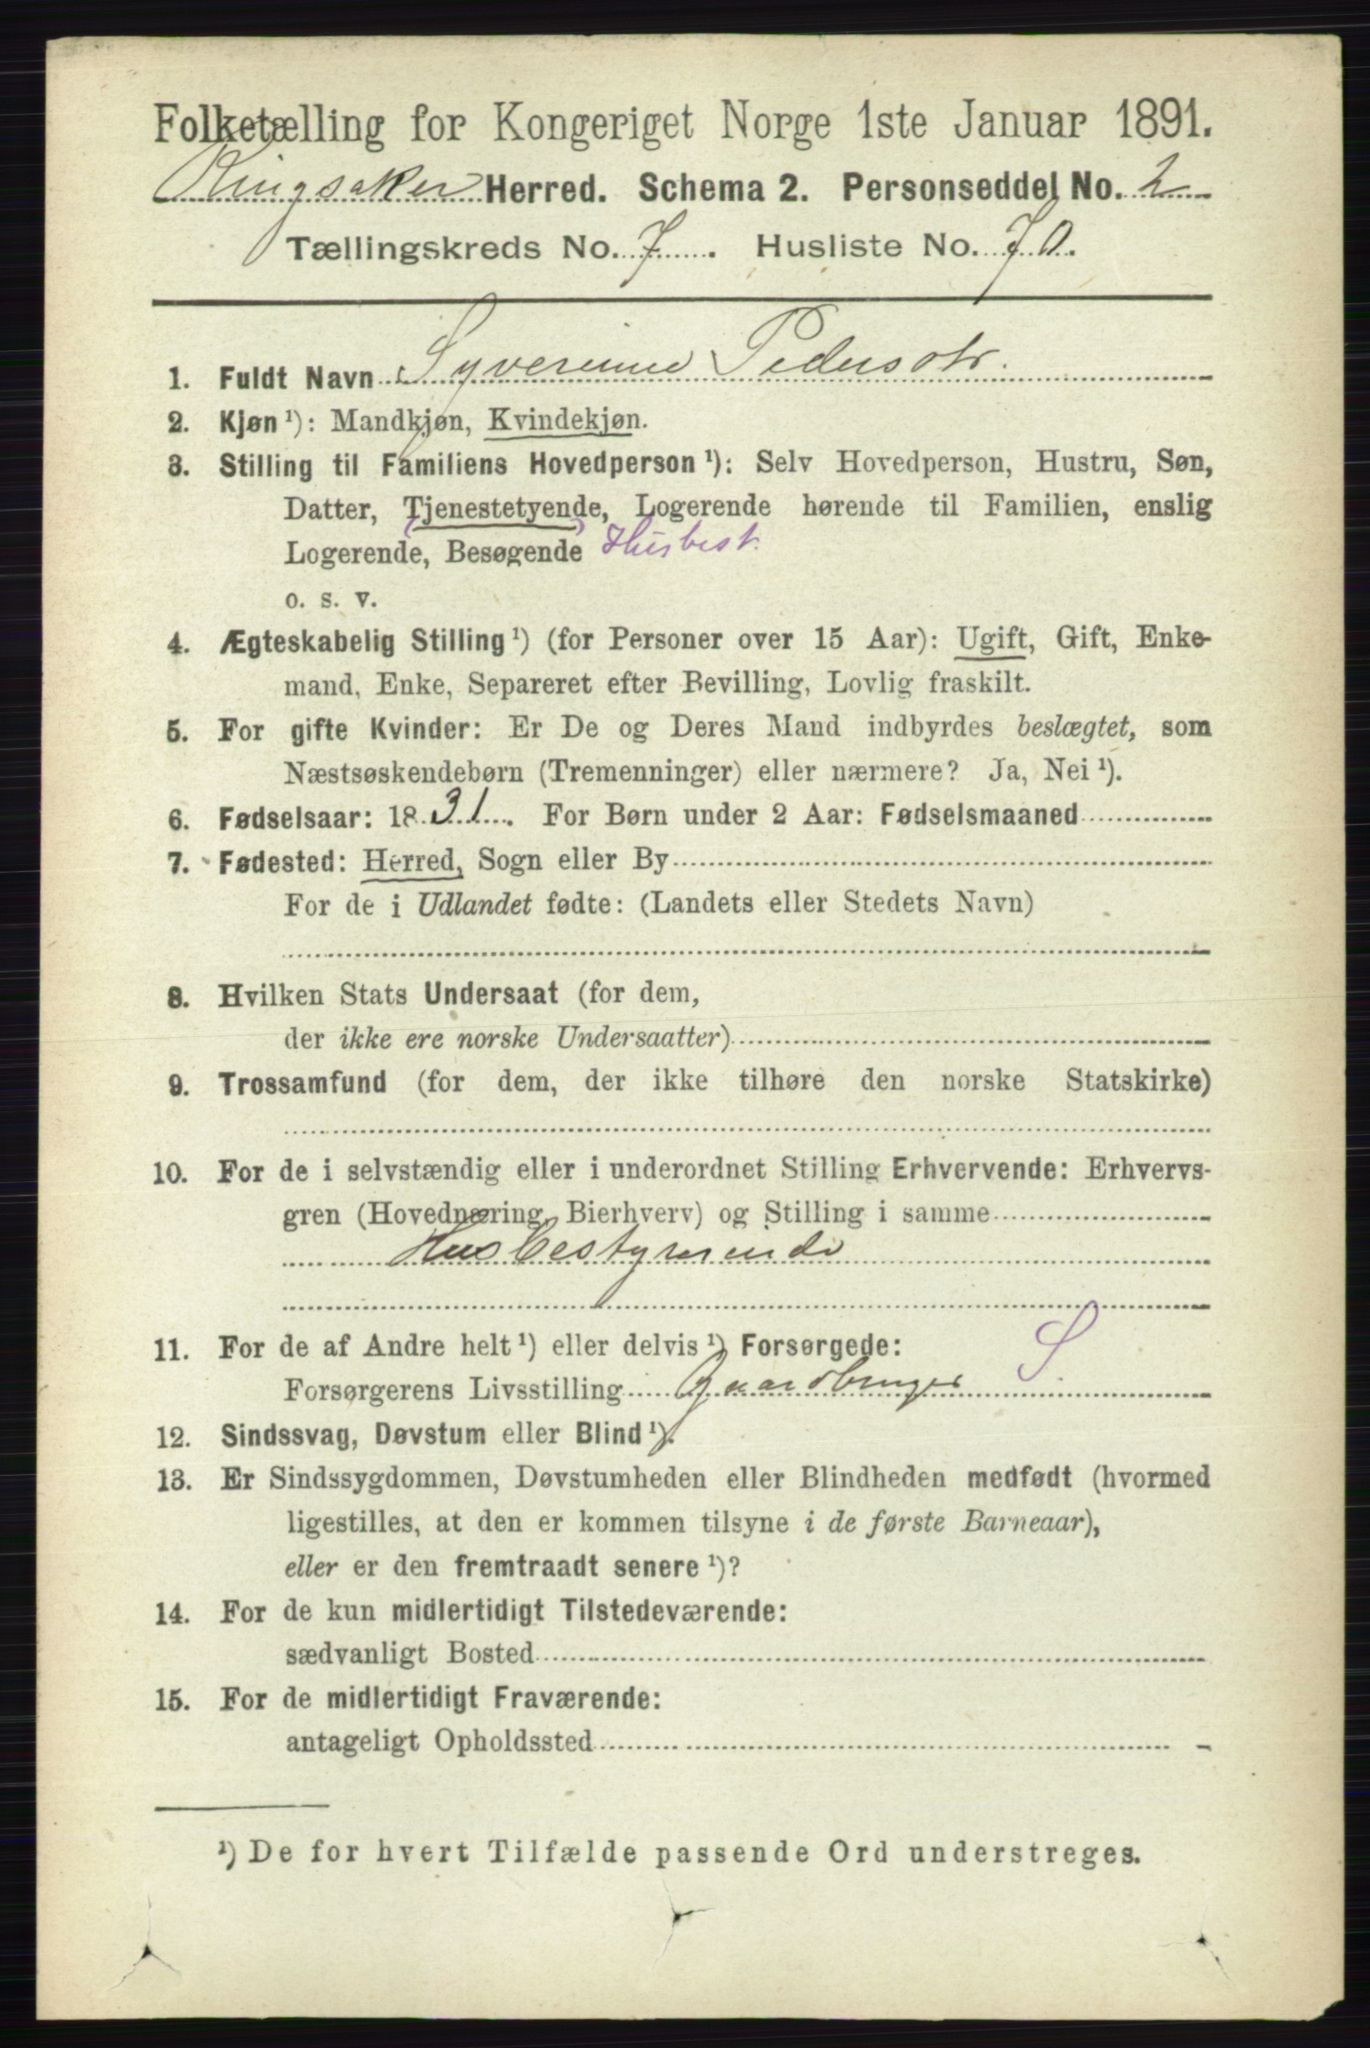 Folketælling for Kongeriget Norge 1ste Januar 1891.
Ringsaker Herred. Schema 2. Personseddel No. 2
Tællingskreds No. 7. Husliste No. 70.
1. Fuldt Navn Syverinne Pedersdtr.
2. Kjøn¹): Mandkjøn, Kvindekjøn.
3. Stilling til Familiens Hovedperson¹): Selv Hovedperson, Hustru, Søn,
Datter, (Tjenestetyende), Logerende hørende til Familien, enslig
Logerende, Besøgende Husbest.
o. s. v.
4. Ægteskabelig Stilling¹) (for Personer over 15 Aar): Ugift, Gift, Enke-
mand, Enke, Separeret efter Bevilling, Lovlig fraskilt.
5. For gifte Kvinder: Er De og Deres Mand indbyrdes beslægtet, som
Næstsøskendebørn (Tremenninger) eller nærmere? Ja, Nei¹).
6. Fødselsaar: 1831. For Børn under 2 Aar: Fødselsmaaned
7. Fødested: Herred, Sogn eller By
For de i Udlandet fødte: (Landets eller Stedets Navn)
8. Hvilken Stats Undersaat (for dem,
der ikke ere norske Undersaatter)
9. Trossamfund (for dem, der ikke tilhøre den norske Statskirke)
10. For de i selvstændig eller i underordnet Stilling Erhvervende: Erhvervs-
gren (Hovednæring, Bierhverv) og Stilling i samme
Husbestyrende
11. For de af Andre helt¹) eller delvis¹) Forsørgede: S.
Forsørgerens Livsstilling Gaardbruger
12. Sindssvag, Døvstum eller Blind¹).
13. Er Sindssygdommen, Døvstumheden eller Blindheden medfødt (hvormed
ligestilles, at den er kommen tilsyne i de første Barneaar),
eller er den fremtraadt senere¹)?
14. For de kun midlertidigt Tilstedeværende:
sædvanligt Bosted
15. For de midlertidigt Fraværende:
antageligt Opholdssted
¹) De for hvert Tilfælde passende Ord understreges.